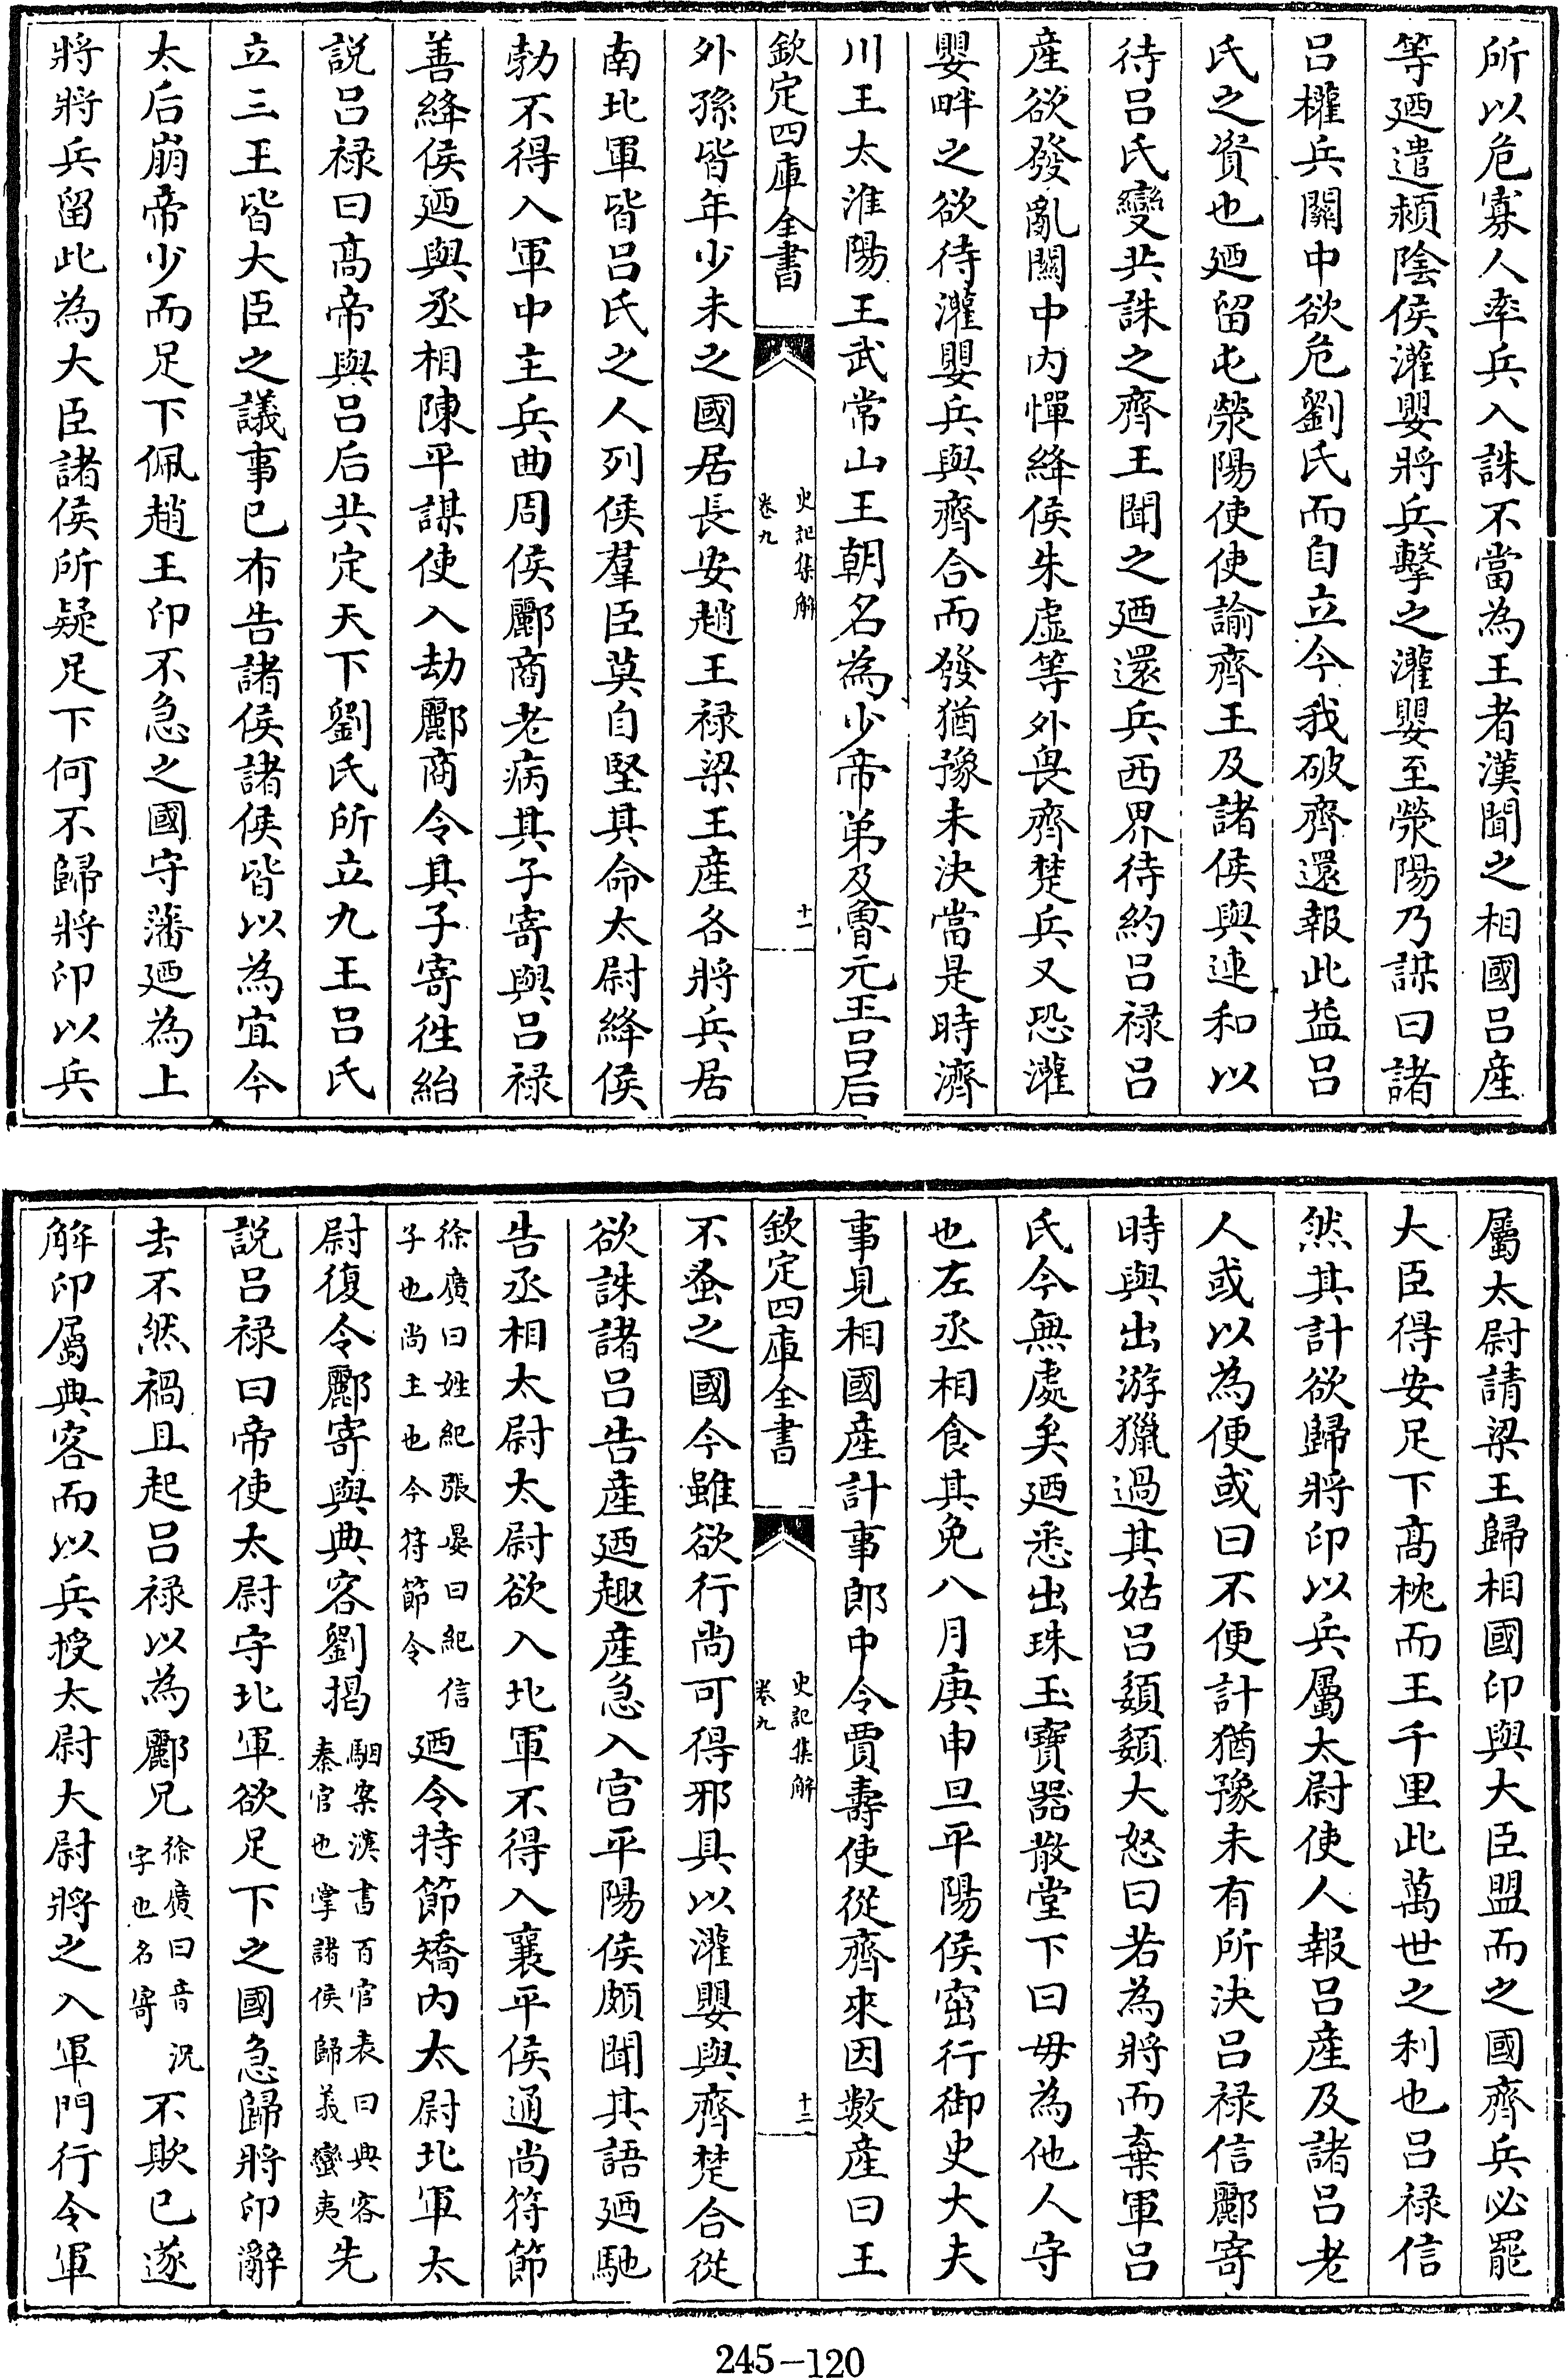 所以危寡人率兵入誅不當為王者漢聞之相國吕産
等廼遣潁陰侯灌嬰將兵擊之灌嬰至滎陽乃謀曰諸
吕權兵關中欲危劉氏而自立今我破齊還報此益吕
氏之資也廼留屯滎陽使使諭齊王及諸侯與連和以
待吕氏變共誅之齊王聞之廼還兵西界待約吕禄吕
産欲發亂關中内憚絳侯朱虚等外畏齊楚兵又恐灌
嬰畔之欲待灌嬰兵與齊合而發猶豫未決當是時濟
川王太淮陽王武常山王朝名為少帝弟及魯元王吕后
欽定四庫全書
史記集解
卷九
十一
外孫皆年少未之國居長安趙王禄梁王産各將兵居
南北軍皆吕氏之人列侯羣臣莫自堅其命太尉絳侯
勃不得入軍中主兵曲周侯酈商老病其子寄與吕禄
善絳侯廼與丞相陳平謀使人劫酈商令其子寄徃紿
説吕禄曰髙帝與吕后共定天下劉氏所立九王吕氏
立三王皆大臣之議事已布告諸侯諸侯皆以為宜今
太后崩帝少而足下佩趙王印不急之國守藩廼為上
將將兵留此為大臣諸侯所疑足下何不歸將印以兵
屬太尉請梁王歸相國印與大臣盟而之國齊兵必罷
大臣得安足下髙枕而王千里此萬世之利也吕禄信
然其計欲歸將印以兵屬太尉使人報吕産及諸吕老
人或以為便或曰不便計猶豫未有所決吕禄信酈寄
時與出游獵過其姑吕嬃嬃大怒曰若為將而棄軍吕
氏今無處矣廼悉出珠玉寶器散堂下曰毋為他人守
也左丞相食其免八月庚申旦平陽侯窋行御史大夫
事見相國産計事郎中令賈壽使從齊來因數産曰王
欽定四庫全書
史記集解
卷九
十二
不蚤之國今雖欲行尚可得邪具以灌嬰與齊楚合從
欲誅諸吕告産廼趣産急入宫平陽侯頗聞其語廼馳
告丞相太尉太尉欲入北軍不得入襄平侯通尚符節
徐廣曰姓紀張晏曰紀信
子也尚主也今符節令
廼令持節矯内太尉北軍太
尉復令酈寄與典客劉揭
駰案漢書百官表曰典客
秦官也掌諸侯歸義蠻夷
先
説吕禄曰帝使太尉守北軍欲足下之國急歸將印辭
去不然禍且起吕禄以為酈兄
徐廣曰音况
字也名寄
不欺已遂
解印屬典客而以兵授太尉大尉將之入軍門行令軍
245-120